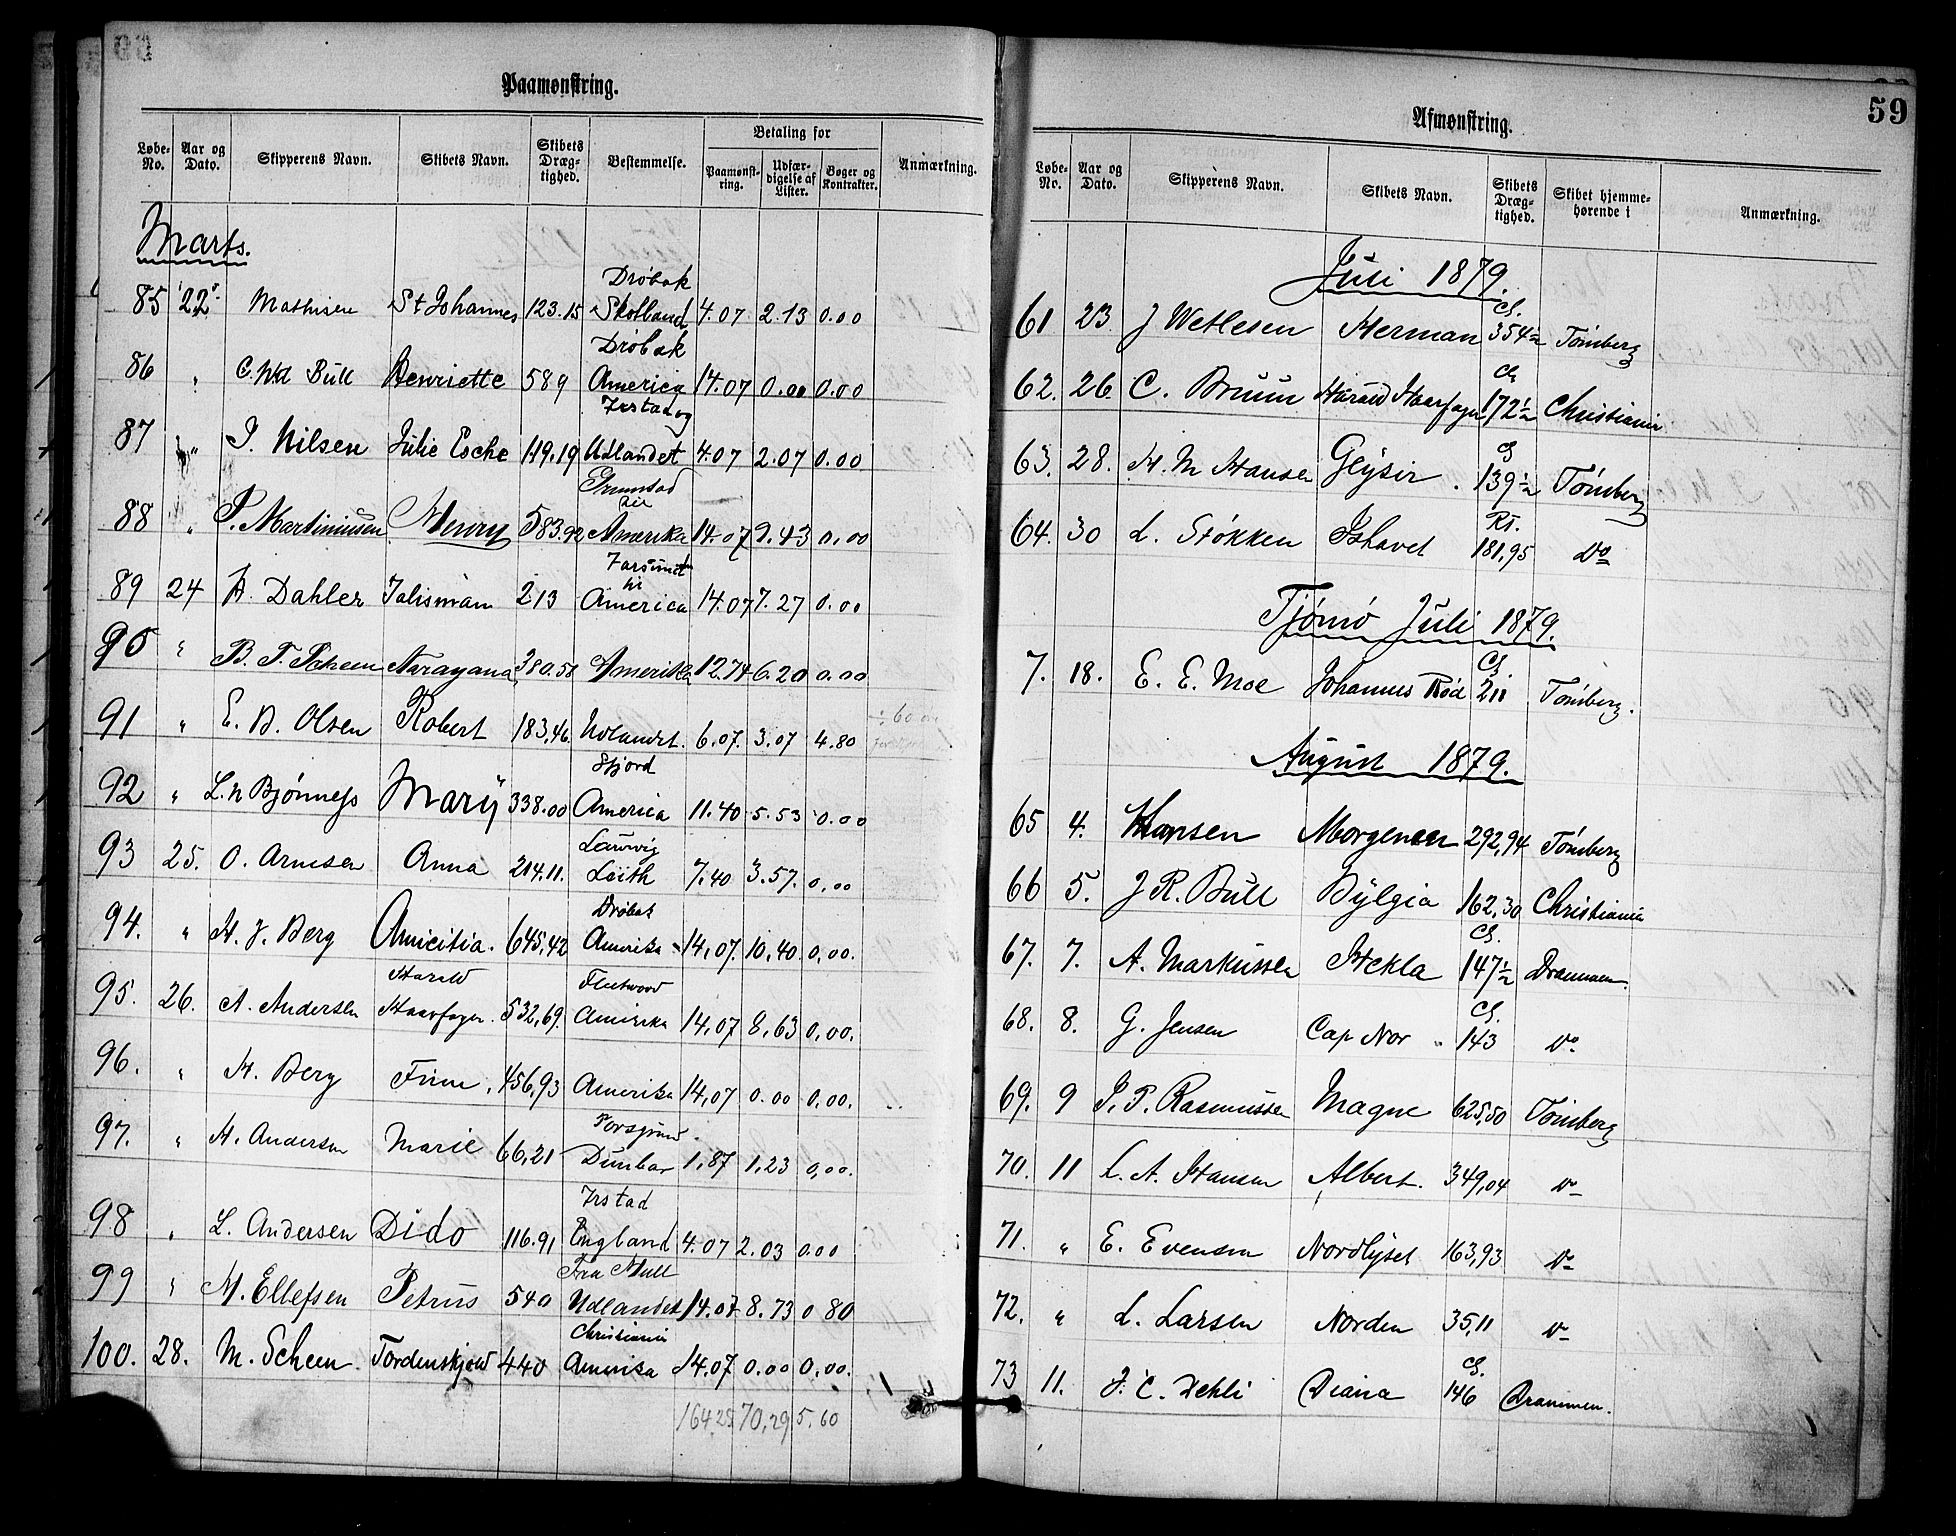 Paamønstring.
Løbe-No. Aar og Dato. Skipperens Navn. Skibets Navn. Skibets Dræg-tighed. Bestemmelse. Betaling for Paamønst-ring. Udfær-digelse af Lister. Bøger og Kontrakter. Anmærkning.
Marts.
Drøbak
85 22 Mathisen St Johannes 123.15 Skotland 4.07 2.13 0.00
Drøbak
86 " Bull Henriette 589 America 14.07 0.00 0.00
87 " J. Nilsen Julie Esche 119,19 Udlandet 4.07 2.07 0.00
Grimstad
til
88 " P. Martiniussen Mercy 583.92 Amerika 14.07 9.43 0.00
Farsund
til
89 24 A. Dahler Talisman 213 America 14.07 7.27 0.00
90 " B. T. Scheen Narayana 380.58 Amerika 12.74 6.20 0.00
91 " E. B. Olsen Robert 183,46 Udlandet. 6.07. 3.07 4.80
Fjord
92 " L. N Bjønness Mary 338.00 America 11.40 5.53 0.00
Laurvig
93 25. O. Arnesen Anna 214.11. Leith 7.40 3.57. 0.00
Drøbak
94. " H. J. Berg Amicitia. 645,42 Amerika 14,07. 10,40 0,00.
Harald Fleetwood
95. 26. A. Andersen Haarfager. 532,69. Amerika 14,07 8,63 0,00.
96. " H. Berg Finn, 456,93 Amerika 14,07 0.00 0,00.
Porsgrund
97. " H. Andersen Marie 66,21 Dunbar 1,87 1,23 0,00.
Ystad
98 " L. Andersen Dido 116.91 England 4.07 2.03 0.00
Fra Hull
99 " M. Ellefsen Petrus 540 Udlandet 14.07 8.73 0 80
Christiania
100. 28. M. Scheen. Tordenskjold 440 Amerika 14.07 0.00 0,00.
164.25 70,29 5.60
59
Afmønstring.
Løbe-No. Aar og Dato. Skipperens Navn. Skibets Navn. Skibets Dræg-tighed. Skibet hjemme-hørende i Anmærkning.
Juli 1879.
Cl.
61 23. J Wetlesen Herman 354½ Tönsberg
Cl
62. 26. C. Bruun Harald Haarfager 172½ Christiania
Cl
63. 28. H. M Hansen Geysir. 139½ Tönsberg
Rt.
64. 30 L. Støkken Ishavet 181,95 Do
Tjømø Juli 1879.
Cl
7. 18. E. E. Moe Johannes Rød 211 Tönsberg.
August 1879.
65 4. Hansen Morgenen 292,94 Tönsberg
66 5. J R. Bull Bylgia 162,30 Christiania
Cl.
67. 7. A. Markussen Hekla 147½ Drammen.
Cl.
68. 8. G. Jensen Cap Nor 143 Do.
69. 9 J. P. Rasmussen Magne 625,50 Tönsberg
70. 11 L. A. Hansen Albert. 349,04 Do
71. " E. Evensen Nordlyset 163,93 Do
72. " L. Larsen Norden 35,11 Do
Cl.
73 11. J. C. Dehli Diana 146 Drammen.